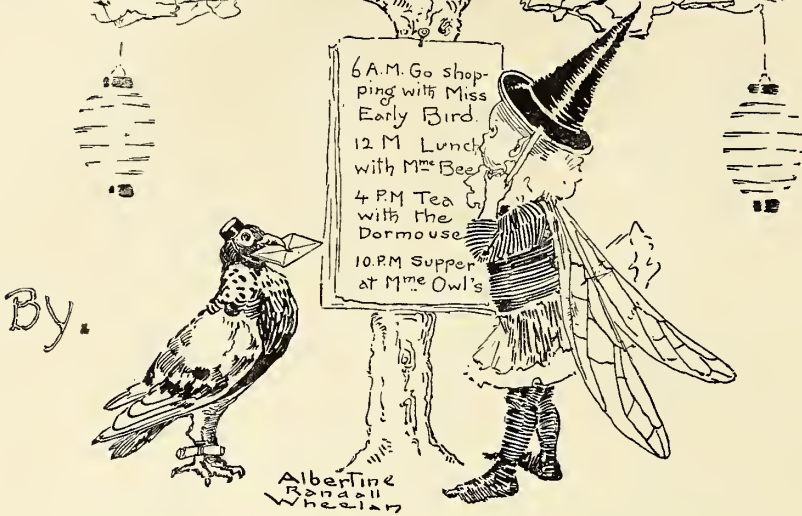 6 A.M. Go shop-
ping with Miss
Early Bird.
12 M Lunch
with Mme Bee
4 P.M Tea
with the
Dormouse
10.P.M Supper
at Mme Owl's
By.
Albertine
Randall
Wheelan